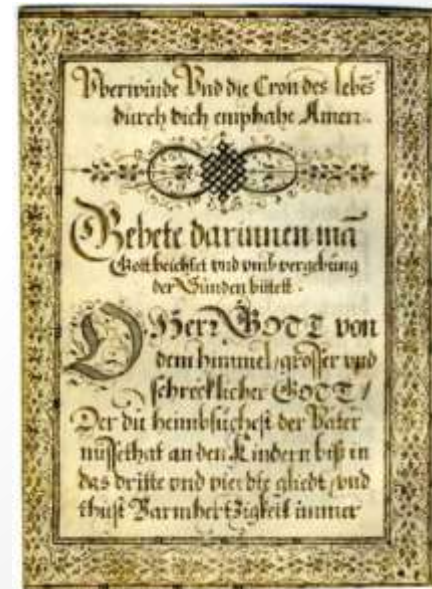 Vberwinde Vnd die Cron des lebẽs
durch dich empfahe Amen.
Gebete darinnen mã
Gott beichtet vnd vmb vergebung
der Sünden bittett.
O Herr GOTT von
dem himmel, grosser vnd
schrecklicher GOTT /
Der du heimbsuchest der Vater
missethat an den Kindern biß in
das dritte vnd vierdte gliedt, vnd
thust Barmhertzigkeit immer